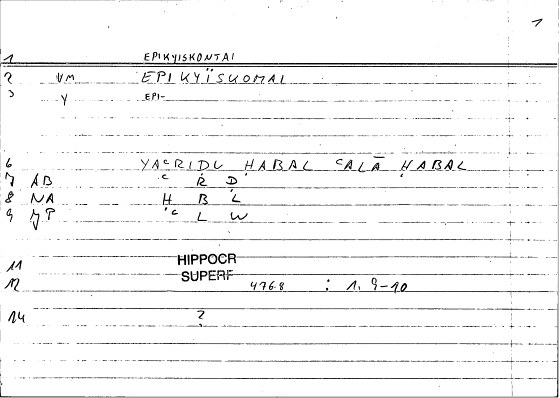 1
1 EPIKYISKONTAI
2 VM EPIKYÏSKOMAI
3 Y EPI-
6 YAʿRIḌU ḤABAL ʿALĀ ḤABAL
7 AB ʿ R Ḍ
8 NA Ḥ B L
9 JP ʿ L W
11 HIPPOCR
12 SUPERF 476.8 : 1, 9-10
14 ?